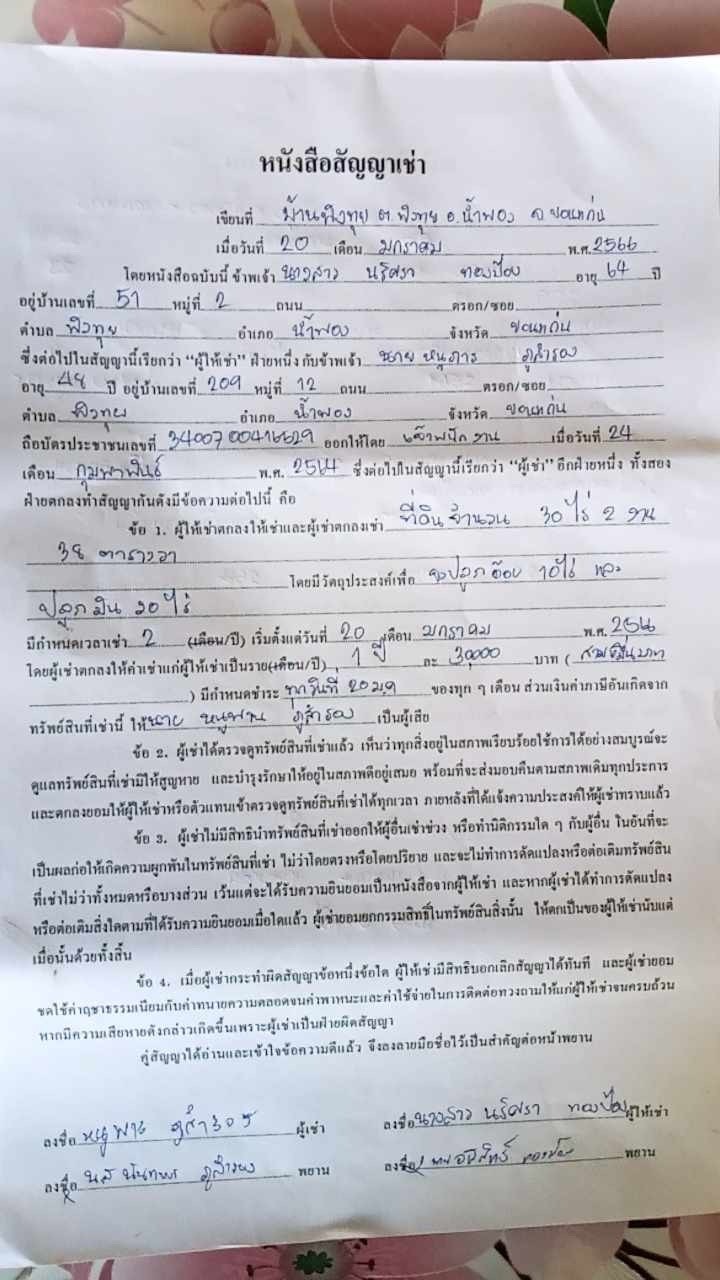 หนังสือสัญญาเช่า
เขียนที่ บ้านพังทุย ต.พังทุย อ.น้ำพอง จ.ขอนแก่น
เมื่อวันที่ 20 เดือน มกราคม พ.ศ. 2566
โดยหนังสือฉบับนี้ ข้าพเจ้า นางสาว นริศรา ทองป้อง อายุ 64 ปี
อยู่บ้านเลขที่ 51 หมู่ที่ 2 ถนน ตรอก/ซอย
ตำบล พังทุย อำเภอ น้ำพอง จังหวัด ขอนแก่น
ซึ่งต่อไปในสัญญานี้เรียกว่า "ผู้ให้เช่า" ฝ่ายหนึ่ง กับข้าพเจ้า นาย หนูภาร ภูสำรอง
อายุ 48 ปี อยู่บ้านเลขที่ 209 หมู่ที่ 12 ถนน ตรอก/ซอย
ตำบล พังทุย อำเภอ น้ำพอง จังหวัด ขอนแก่น
ถือบัตรประชาชนเลขที่ ออกให้โดย เจ้าพนักงาน เมื่อวันที่ 24
เดือน กุมพาพันธ์ พ.ศ. 2564 ซึ่งต่อไปในสัญญานี้เรียกว่า "ผู้เช่า" อีกฝ่ายหนึ่ง ทั้งสอง
ฝ่ายตกลงทำสัญญากันดังมีข้อความต่อไปนี้ คือ
ข้อ 1. ผู้ให้เช่าตกลงให้เช่าและผู้เช่าตกลงเช่า ที่ดินจำนวน 30 ไร่ 2 งาน
38 ตารางวา
โดยมีวัตถุประสงค์เพื่อ ปลูกอ้อย 10 ไร่ และ
ปลูกมัน 20 ไร่
มีกำหนดเวลาเช่า 2 (เดือน/ปี) เริ่มตั้งแต่วันที่ 20 เดือน มกราคม พ.ศ.
โดยผู้เช่าตกลงให้ค่าเช่าแก่ผู้ให้เช่าเป็นราย(เดือน/ปี) 1 ปี ละ 30,000 บาท (สามหมื่นบาท
) มีกำหนดชำระ ทุกวันที่ 20 ม.ค ของทุก ๆ เดือน ส่วนเงินค่าภาษีอันเกิดจาก
ทรัพย์สินที่เช่านี้ ให้ นาย หนูพาน ภูสำรอง เป็นผู้เสีย
ข้อ 2. ผู้เช่าได้ตรวจดูทรัพย์สินที่เช่าแล้ว เห็นว่าทุกสิ่งอยู่ในสภาพเรียบร้อยใช้การได้อย่างสมบูรณ์จะ
ดูแลทรัพย์สินที่เช่ามิให้สูญหาย และบำรุงรักษาให้อยู่ในสภาพดีอยู่เสมอ พร้อมที่จะส่งมอบคืนตามสภาพเดิมทุกประการ
และตกลงยอมให้ผู้ให้เช่าหรือตัวแทนเข้าตรวจดูทรัพย์สินที่เช่าได้ทุกเวลา ภายหลังที่ได้แจ้งความประสงค์ให้ผู้เช่าทราบแล้ว
ข้อ 3. ผู้เช่าไม่มีสิทธินำทรัพย์สินที่เช่าออกให้ผู้อื่นเช่าช่วง หรือทำนิติกรรมใด ๆ กับผู้อื่น ในอันที่จะ
เป็นผลก่อให้เกิดความผูกพันในทรัพย์สินที่เช่า ไม่ว่าโดยตรงหรือโดยปริยาย และจะไม่ทำการดัดแปลงหรือต่อเติมทรัพย์สิน
ที่เช่าไม่ว่าทั้งหมดหรือบางส่วน เว้นแต่จะได้รับความยินยอมเป็นหนังสือจากผู้ให้เช่า และหากผู้เช่าได้ทำการดัดแปลง
หรือต่อเติมสิ่งใดตามที่ได้รับความยินยอมเมื่อใดแล้ว ผู้เช่ายอมยกกรรมสิทธิ์ในทรัพย์สินสิ่งนั้น ให้ตกเป็นของผู้ให้เช่านับแต่
เมื่อนั้นด้วยทั้งสิ้น
ข้อ 4. เมื่อผู้เช่ากระทำผิดสัญญาข้อหนึ่งข้อใด ผู้ให้เช่ามีสิทธิบอกเลิกสัญญาได้ทันที และผู้เช่ายอม
ชดใช้ค่าฤชาธรรมเนียมกับค่าทนายความตลอดจนค่าพาหนะและค่าใช้จ่ายในการติดต่อทวงถามให้แก่ผู้ให้เช่าจนครบถ้วน
หากมีความเสียหายดังกล่าวเกิดขึ้นเพราะผู้เช่าเป็นฝ่ายผิดสัญญา
คู่สัญญาได้อ่านและเข้าใจข้อความดีแล้ว จึงลงลายมือชื่อไว้เป็นสำคัญต่อหน้าพยาน
ลงชื่อ หนูพาน ภูสำรอง ผู้เช่า ลงชื่อ นางสาว นริศรา ทองป้อง ผู้ให้เช่า
ลงชื่อ นส นันทพร ภูสำรอง พยาน ลงชื่อ พยาน